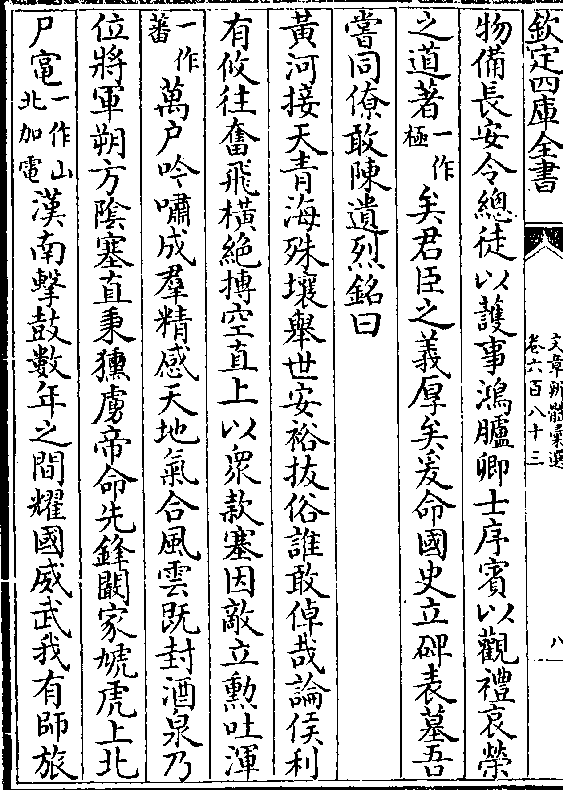 欽定四庫全書
文章辨體彙選
卷六百八十三
八
物備長安令總徒以護事鴻臚卿士序賓以觀禮哀榮
之道著一作極矣君臣之義厚矣爰命國史立碑表墓吾
嘗同僚敢陳遺烈銘曰
黃河接天青海殊壤舉世安裕拔俗誰敢倬哉論侯利
有攸往奮飛橫絶摶空直上以衆款塞因敵立勲吐渾
一作蕃萬户吟嘯成羣精感天地氣合風雲既封酒泉乃
位將軍朔方陰塞直秉獯虜帝命先鋒闞家虓虎上北
尸窀一作山北加電漢南擊鼓數年之間耀國威武我有師旅